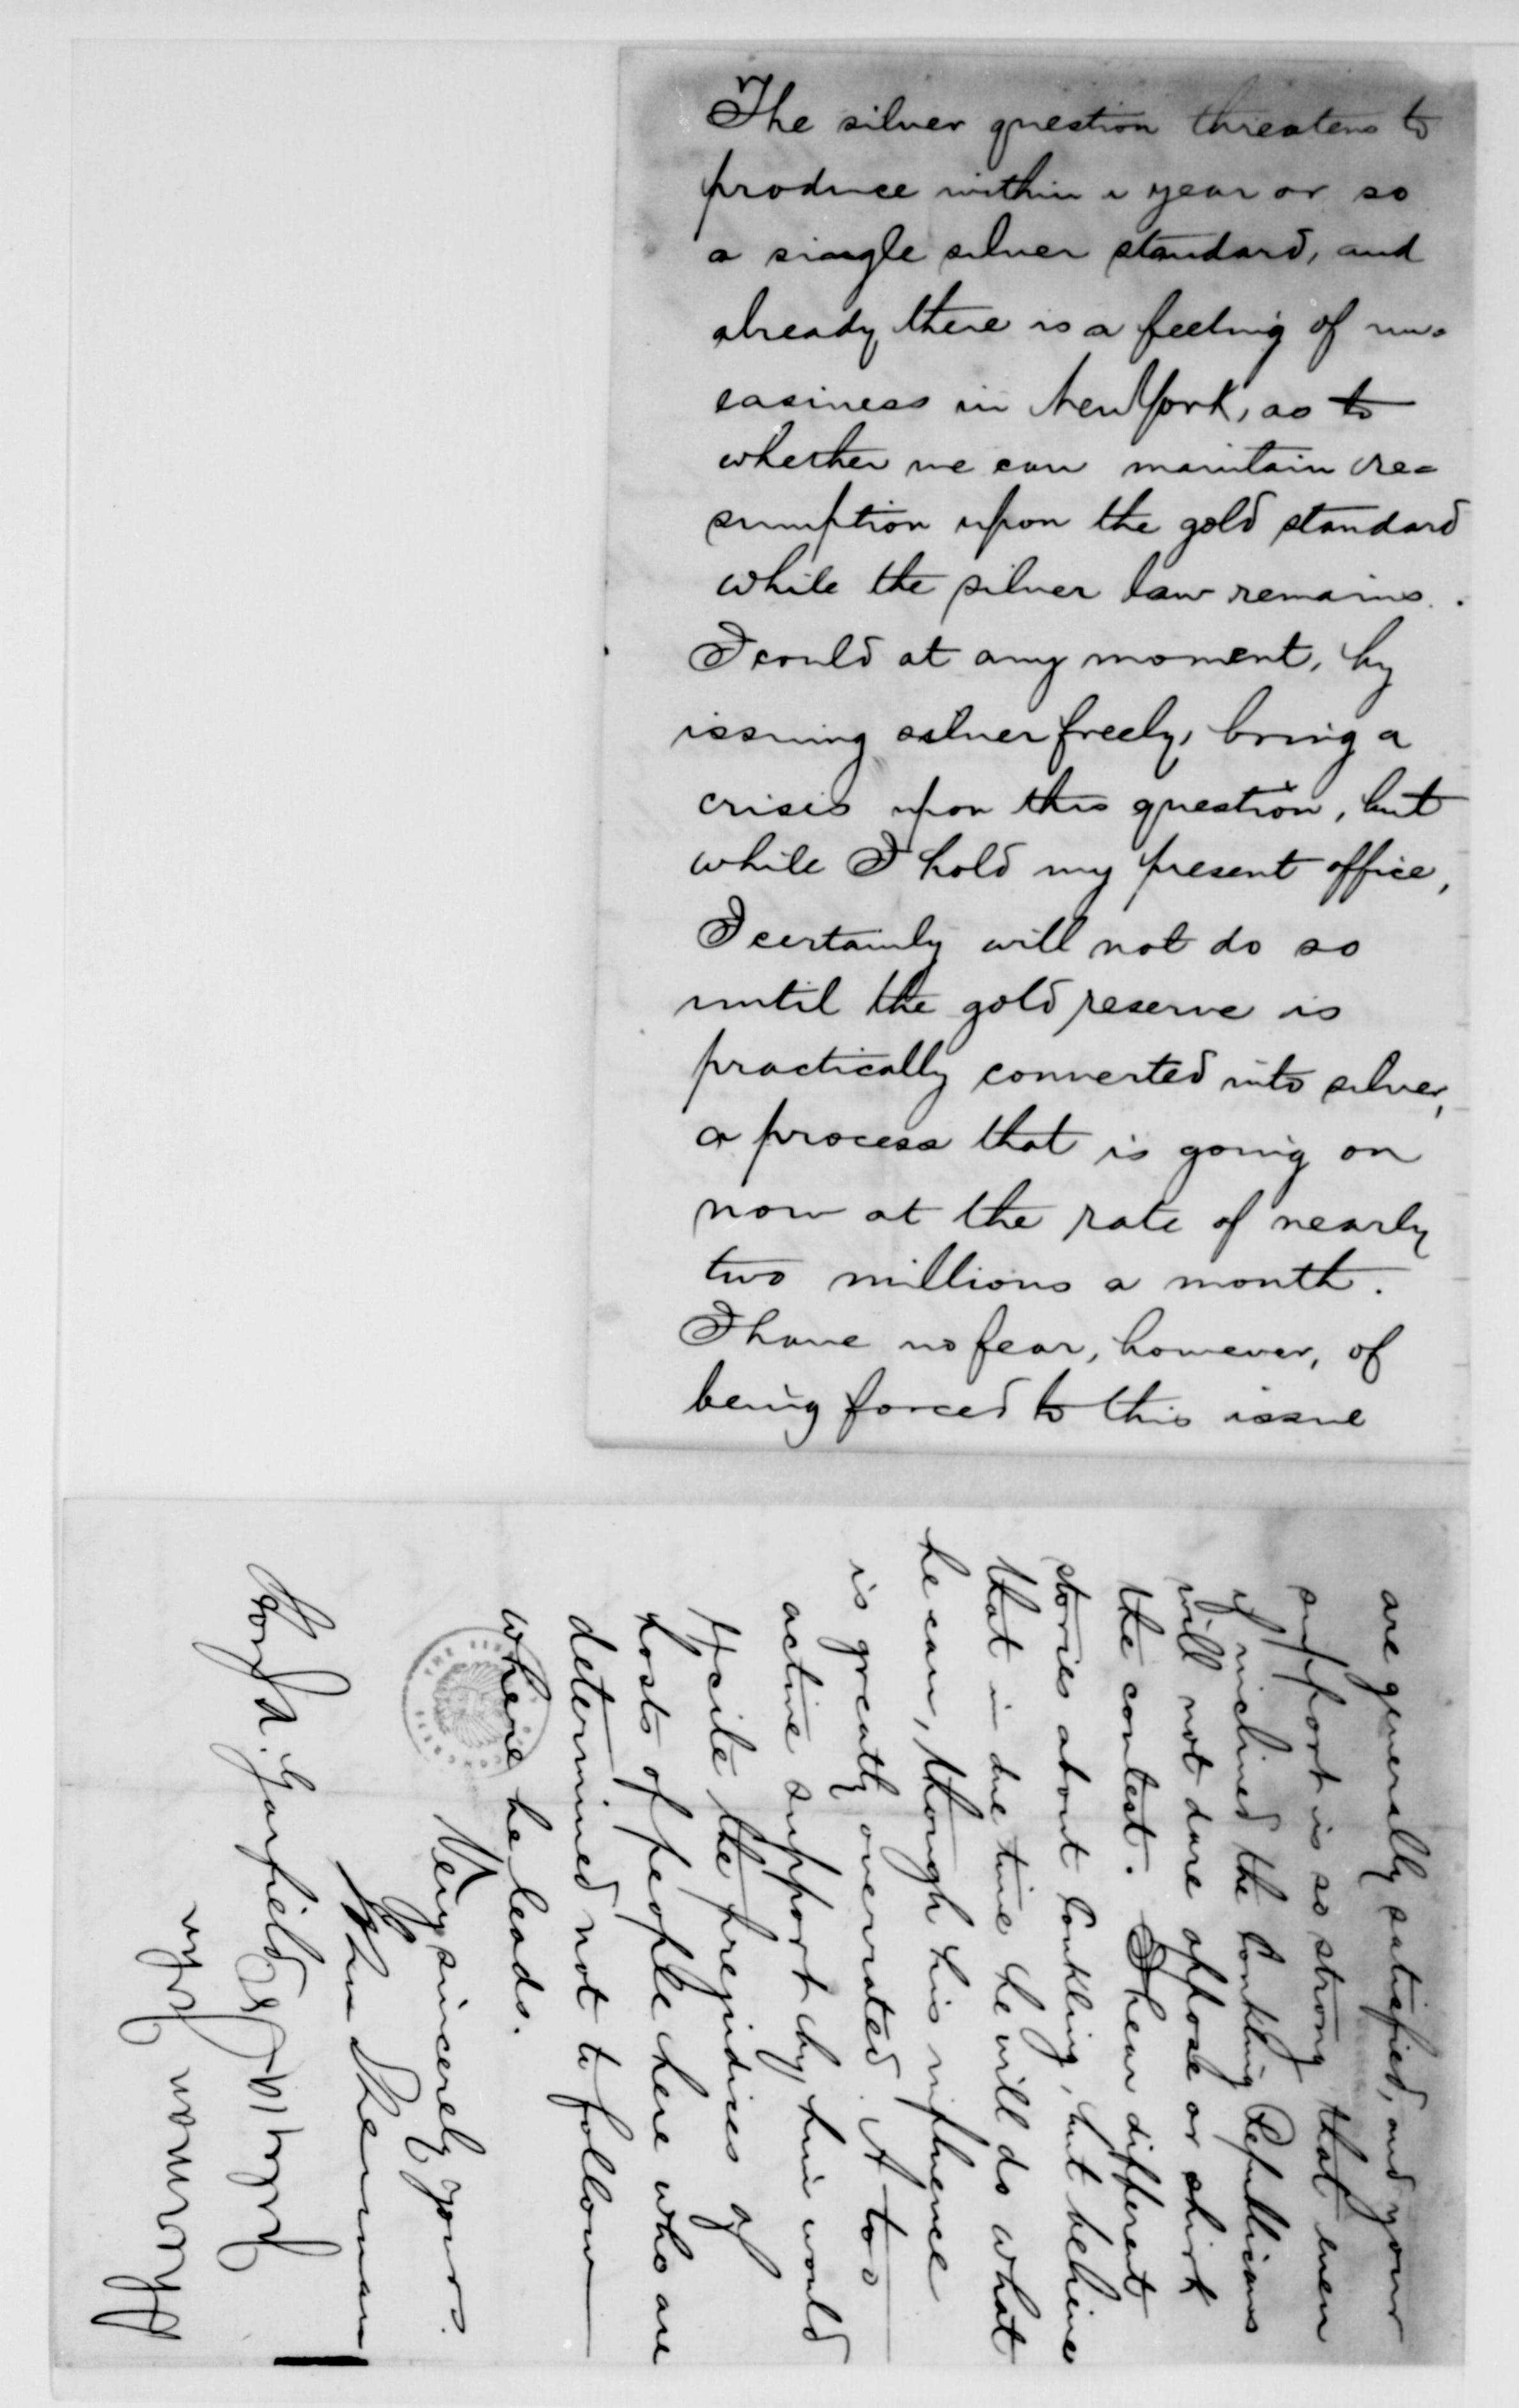 The silver question threatens to
produce within a year or so
a single silver standard, and
already there is a feeling of un-
easiness in New York, as to
whether we can maintain re-
sumption upon the gold standard
while the silver law remains.
I could at any moment, by
issuing silver freely, bring a
crisis upon this question, but
while I hold my present office,
I certainly will not do so
until the gold reserve is
practically converted into silver,
a process that is going on
now at the rate of nearly
two millions a month.
I have no fear, however, of
being forced to this issue
are generally satisfied, and your
support is so strong that even
if inclined the Conkling Republicans
will not dare oppose or shirk
the contest. I hear different
stories about Conkling, but believe
that in due time he will do what
he can, though his influence
is greatly overrated. A too
active support by him would
excite the prejudices of
hosts of people here who are
determined not to follow
where he leads.
Very sincerely yours.
John Sherman
Hon J. A. Garfield
John
Sherman